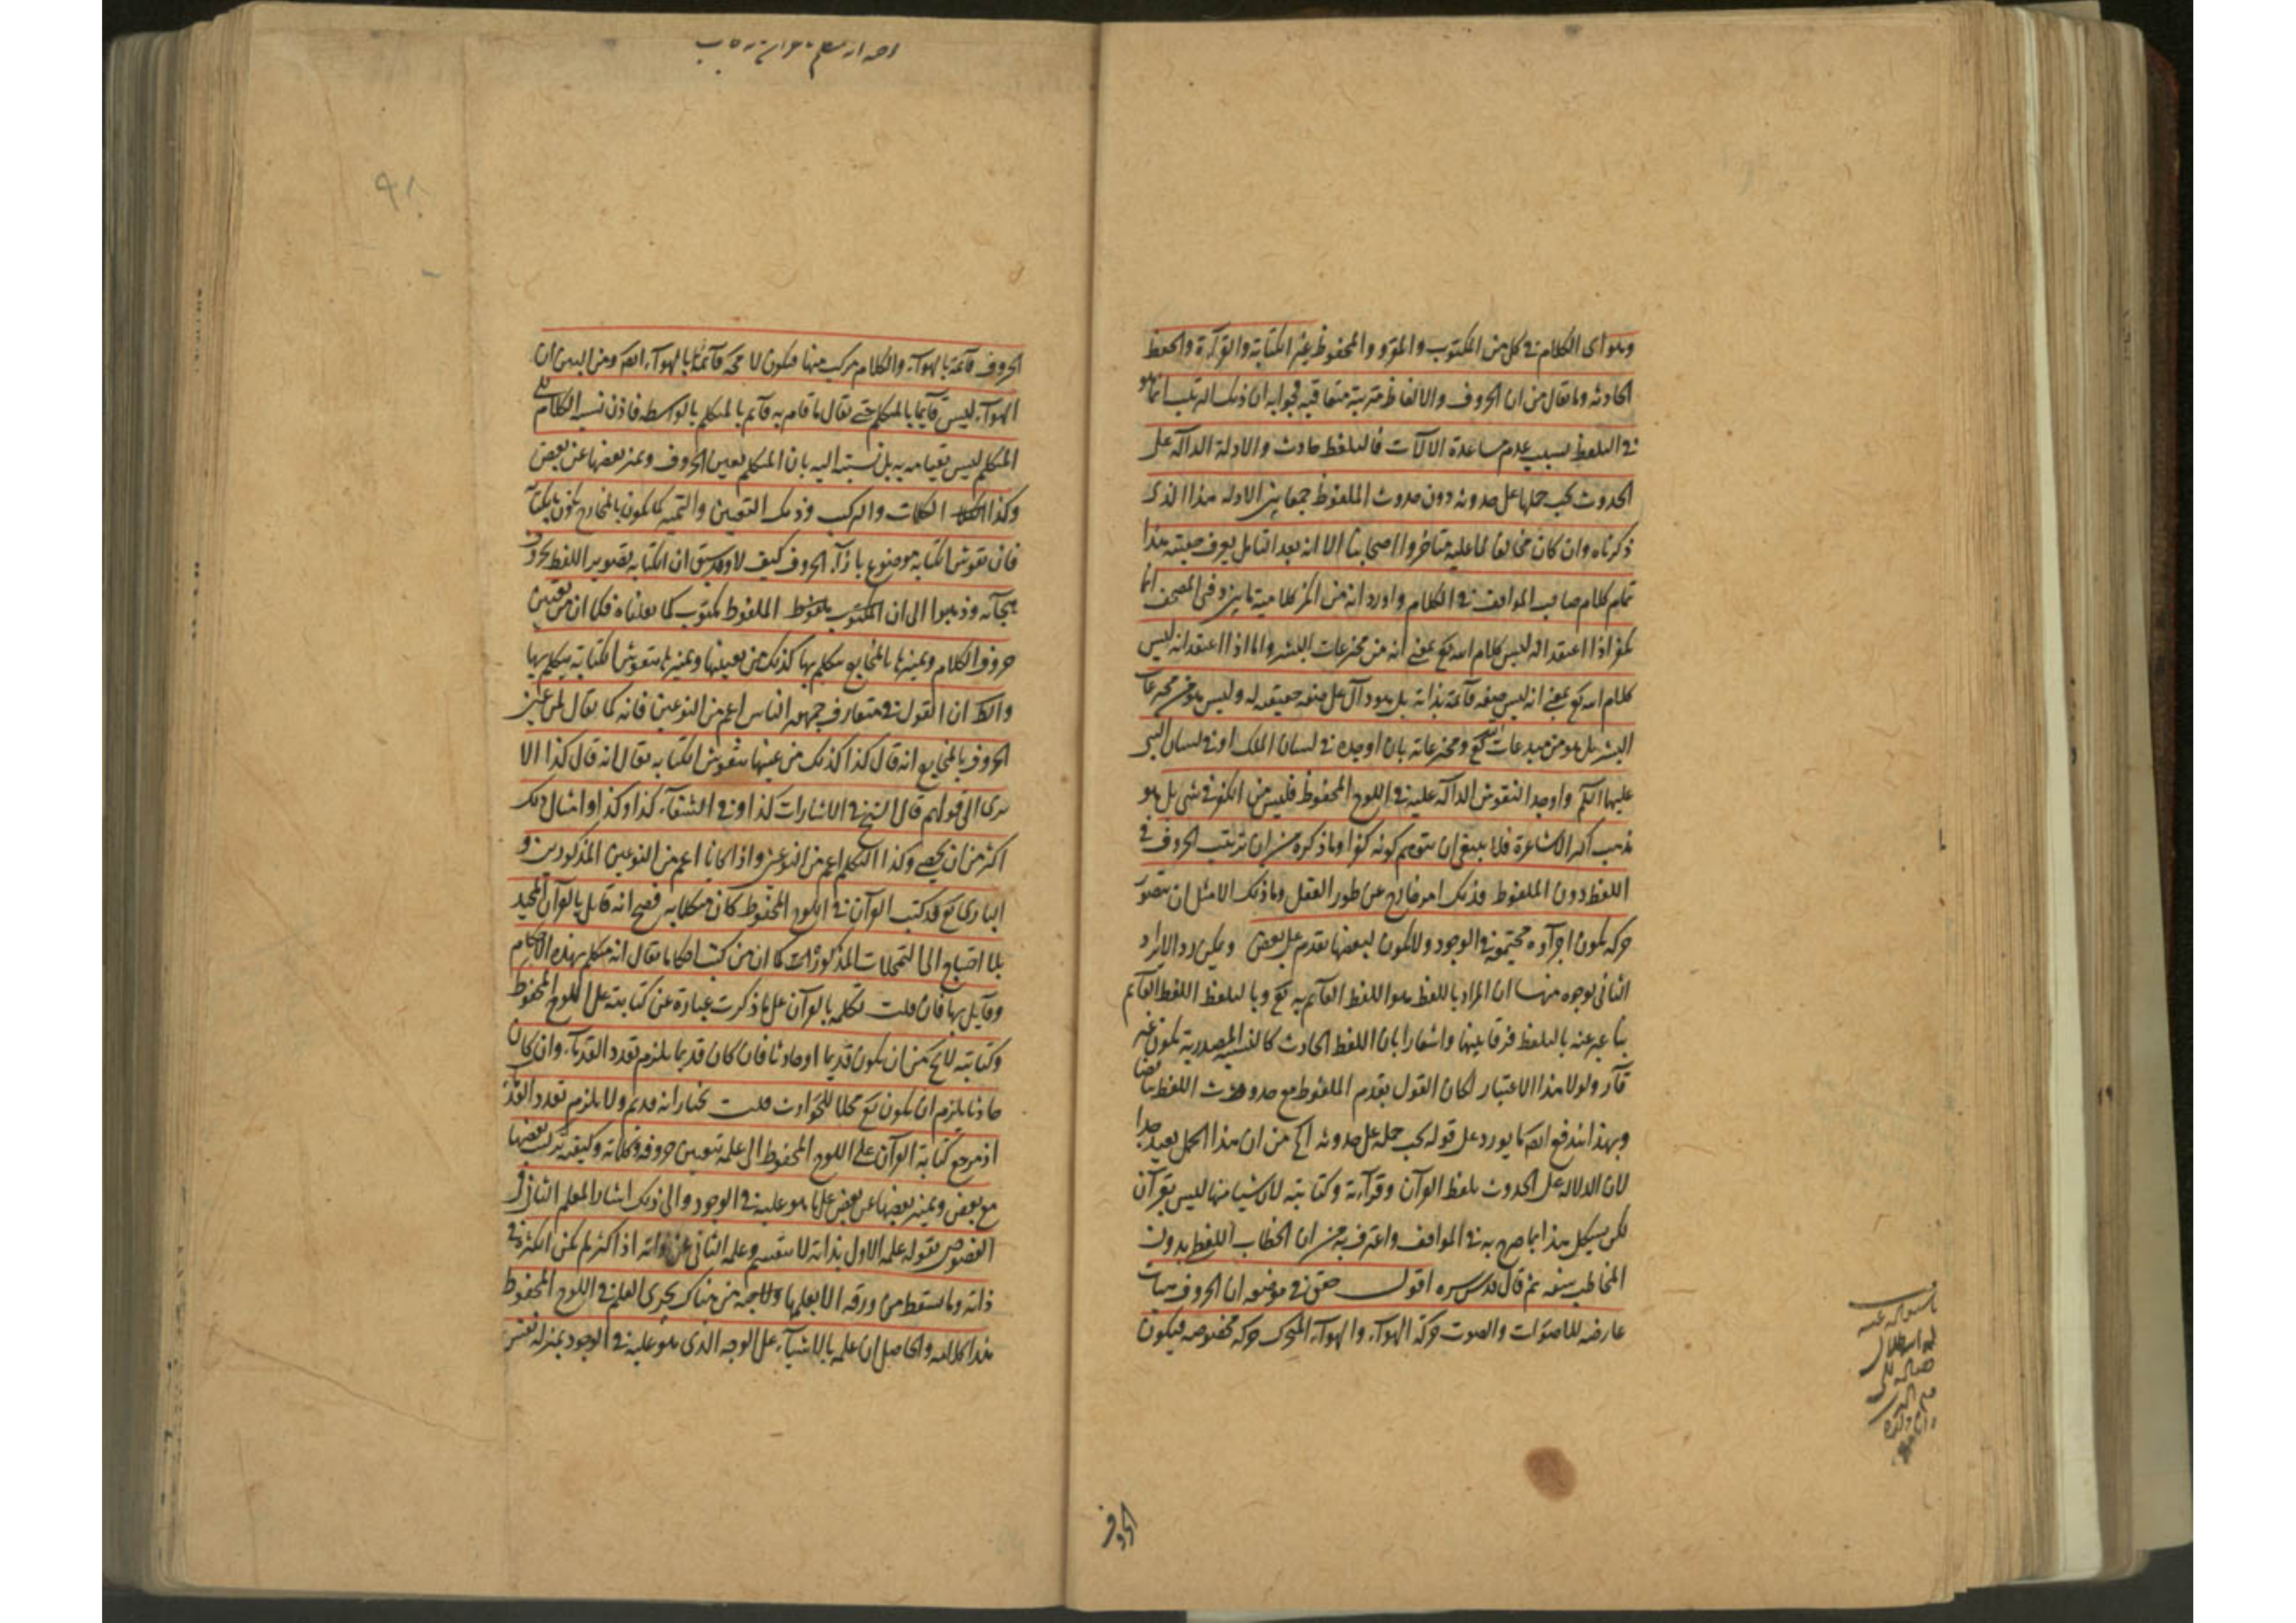 وهو اى الكلام فى كل من المكتوب والمقرو والمحفوظ غير الكتابة والقرآءة والحفظ
الحادثه وما يقال من ان الحروف والالفاظ مترتبة متعاقبة فجوابه ان ذلك الترتيب انما هو
فى التلفظ بسبب عدم مساعدة الالآت فالتلفظ حادث والادلة الدالة على
الحدوث يجب حملها على حدوثه دون حدوث الملفوظ جمعا بين الادلة هذا الذى
ذكرناه وان كان مخالفا لما عليه متاخروا اصحابنا الا انه بعد التامل يعرف حقيقته هذا
تمام كلام صاحب المواقف فى الكلام واورد انه من انكر كلامية ما بين دفتى المصحف انما
يكفر اذا اعتقد انه ليس كلام الله تع بمعنى انه من مخترعات البشر واما اذا اعتقد انه ليس
كلام الله تع بمعنى انه ليس صفة قآئمة بذاته بل هو دآل على صفة حقيقة له وليس هو من مخترعات
البشر بل هو من مبدعات الله تع ومخترعاته بان اوجده فى لسان الملك او فى لسان النبى
عليهما السلم واوجد النقوش الدالة عليه فى اللوح المحفوظ فليس من الكفر فى شى بل هو
مذهب اكثر الاشاعرة فلا ينبغى ان يتوهم كونه كفرا وما ذكره من ان ترتب الحروف فى
اللفظ دون الملفوظ فذلك امر خارج عن طور العقل وما ذلك الا مثل ان يتصور
حركة يكون اجزآؤه مجتمعة فى الوجود ولا يكون لبعضها تقدم على بعض ويمكن رد الايراد
الثانى بوجوه منها ان المراد باللفظ هو اللفظ القآئم به تع وبالتلفظ اللفظ القآئم
بنا عبر عنه بالتلفظ فرقا بينهما واشعارا بان اللفظ الحادث كالنسبة المصدرية يكون غير
قآر ولولا هذا الاعتبار لكان القول بقدم الملفوظ مع حدوث اللفظ تناقضا
وبهذا اندفع ايضا ما يورد على قوله يجب حمله على حدوثه الخ من ان هذا الحمل بعيد جدا
لان الدلالة على الحدوث تلفظ القرآن وقرآءته وكتابته لان شيا منها ليس بقرآن
لكن يشكل هذا بما صرح به فى المواقف واعترف به من ان الخطاب اللفظ بدون
المخاطب سفه ثم قال قدس سره اقول حقق فى موضعه ان الحروف هيات
عارضة للاصوات والصوت حركة الهوآء والهوآء المتحرك حركة مخصوصه فيكون
الحروف
الحروف قآئمة بالهوآء والكلام مركب منها فيكون لا محة قآئما بالهوآء ايضا ومن البين ان
الهوآء ليس قآئما بالمتكلم حتى يقال ما قام به قآئم بالمتكلم بالواسطه فاذن نسبة الكلام الى
المتكلم ليس بقيامه به بل نسبته اليه بان المتكلم يعين الحروف ويميز بعضها عن بعض
وكذا الكلمات والمركب وذلك التعيين والتمييز كما يكون بالمخارج يكون بالكتابة
فان نقوش الكتابة موضوع بازآء الحروف كيف لا وقد سبق ان الكتابة تصوير اللفظ بحروف
هجآئه وذهبوا الى ان المكتوب ملفوظ الملفوظ مكتوب كما نقلناه فكما ان من يعين
حروف الكلام ويميزها بالمخارج متكلم بها كذلك من يعينها ويميزها بنقوش الكتابة متكلم بها
والظ ان القول فى متعارف جمهور الناس اعم من النوعين فانه كما يقال لمن عين
الحروف بالمخارج انه قال كذا كذلك من عينها بنقوش الكتابه يقال انه قال كذا الا
ترى الى قولهم قال الشيخ فى الاشارات كذا وفى الشفآء كذا وكذا وامثال ذلك
اكثر من ان يحصى وكذا التكلم اعم من النوعين واذا كانا اعم من النوعين المذكورين و
البارى تع قد كتب القرآن فى اللوح المحفوظ كان متكلما به فصح انه قآئل بالقرآن المجيد
بلا احتياج الى التمحلات المذكورات كما ان من كتب احكاما يقال انه متكلم بهذه الاحكام
وقآئل بها فان قلت تكلمه بالقرآن على ما ذكرت عبارة عن كتابته على اللوح المحفوظ
وكتابته لا يخ من ان يكون قديما او حادثا فان كان قديما يلزم تعدد القدمآء وان كان
حادثا يلزم ان يكون تع محلا للحوادث قلت نختار انه قديم ولا يلزم تعدد القدمآء
اذ مرجع كتابة القرآن على اللوح المحفوظ الى علمه بتعيين حروفه وكلماته وكيفية تركب بعضها
مع بعض وتميز بعضها عن بعض على ما هو عليه فى الوجود والى ذلك اشار المعلم الثانى فى
الفصوص بقوله علمه الاول بذاته لا ينقسم وعلمه الثانى عن ذاته اذا كثر لم يكن الكثرة فى
ذاته وما تسقط من ورقة الا يعلمها ولاحبة من هناك يجرى القلم فى اللوح المحفوظ
هذا كلامه والحاصل ان علمه بالاشيآء على الوجه الذى هو عليه فى الوجود بمنزلة نقش